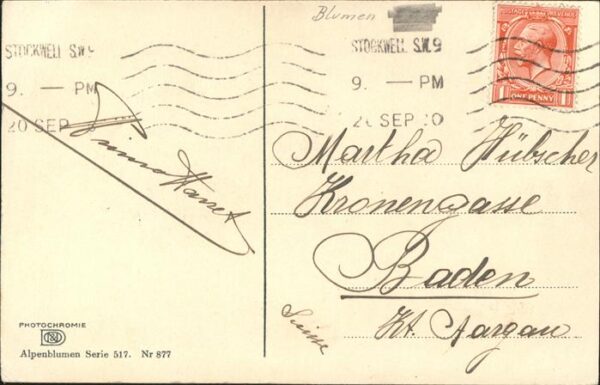 Blumen
STOCKWELL S.W.9
9. — PM
20 SEP
STOCKWELL S.W.9
9 — PM
20 SEP
POSTAGE REVENUE
1 ONE PENNY 1
Martha Hübscher
Kronengasse
Baden
Kt. Aargau
Suisse
PHOTOCHROMIE
Alpenblumen Serie 517. Nr 877